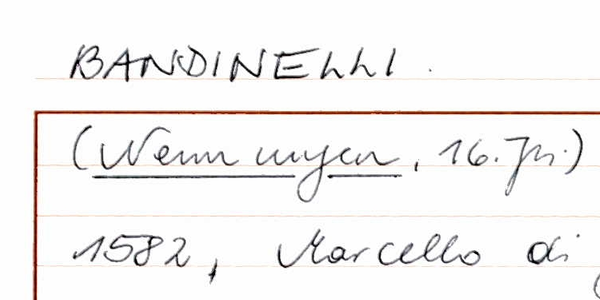 BANDINELLI.
(Nennungen, 16. Jh.)
1582, Marcello di